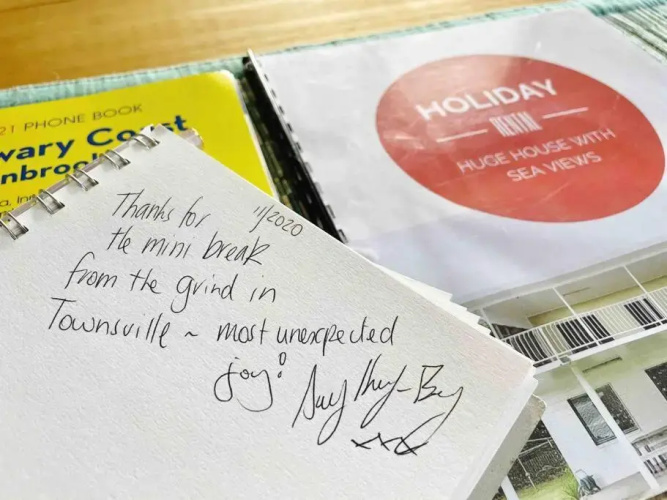 21 PHONE BOOK
wary Coast
nbrook
HOLIDAY
RENTAL
HUGE HOUSE WITH
SEA VIEWS
11/2020
Thanks for
the mini break
from the grind in
Townsville ~ most unexpected
joy!
xxx